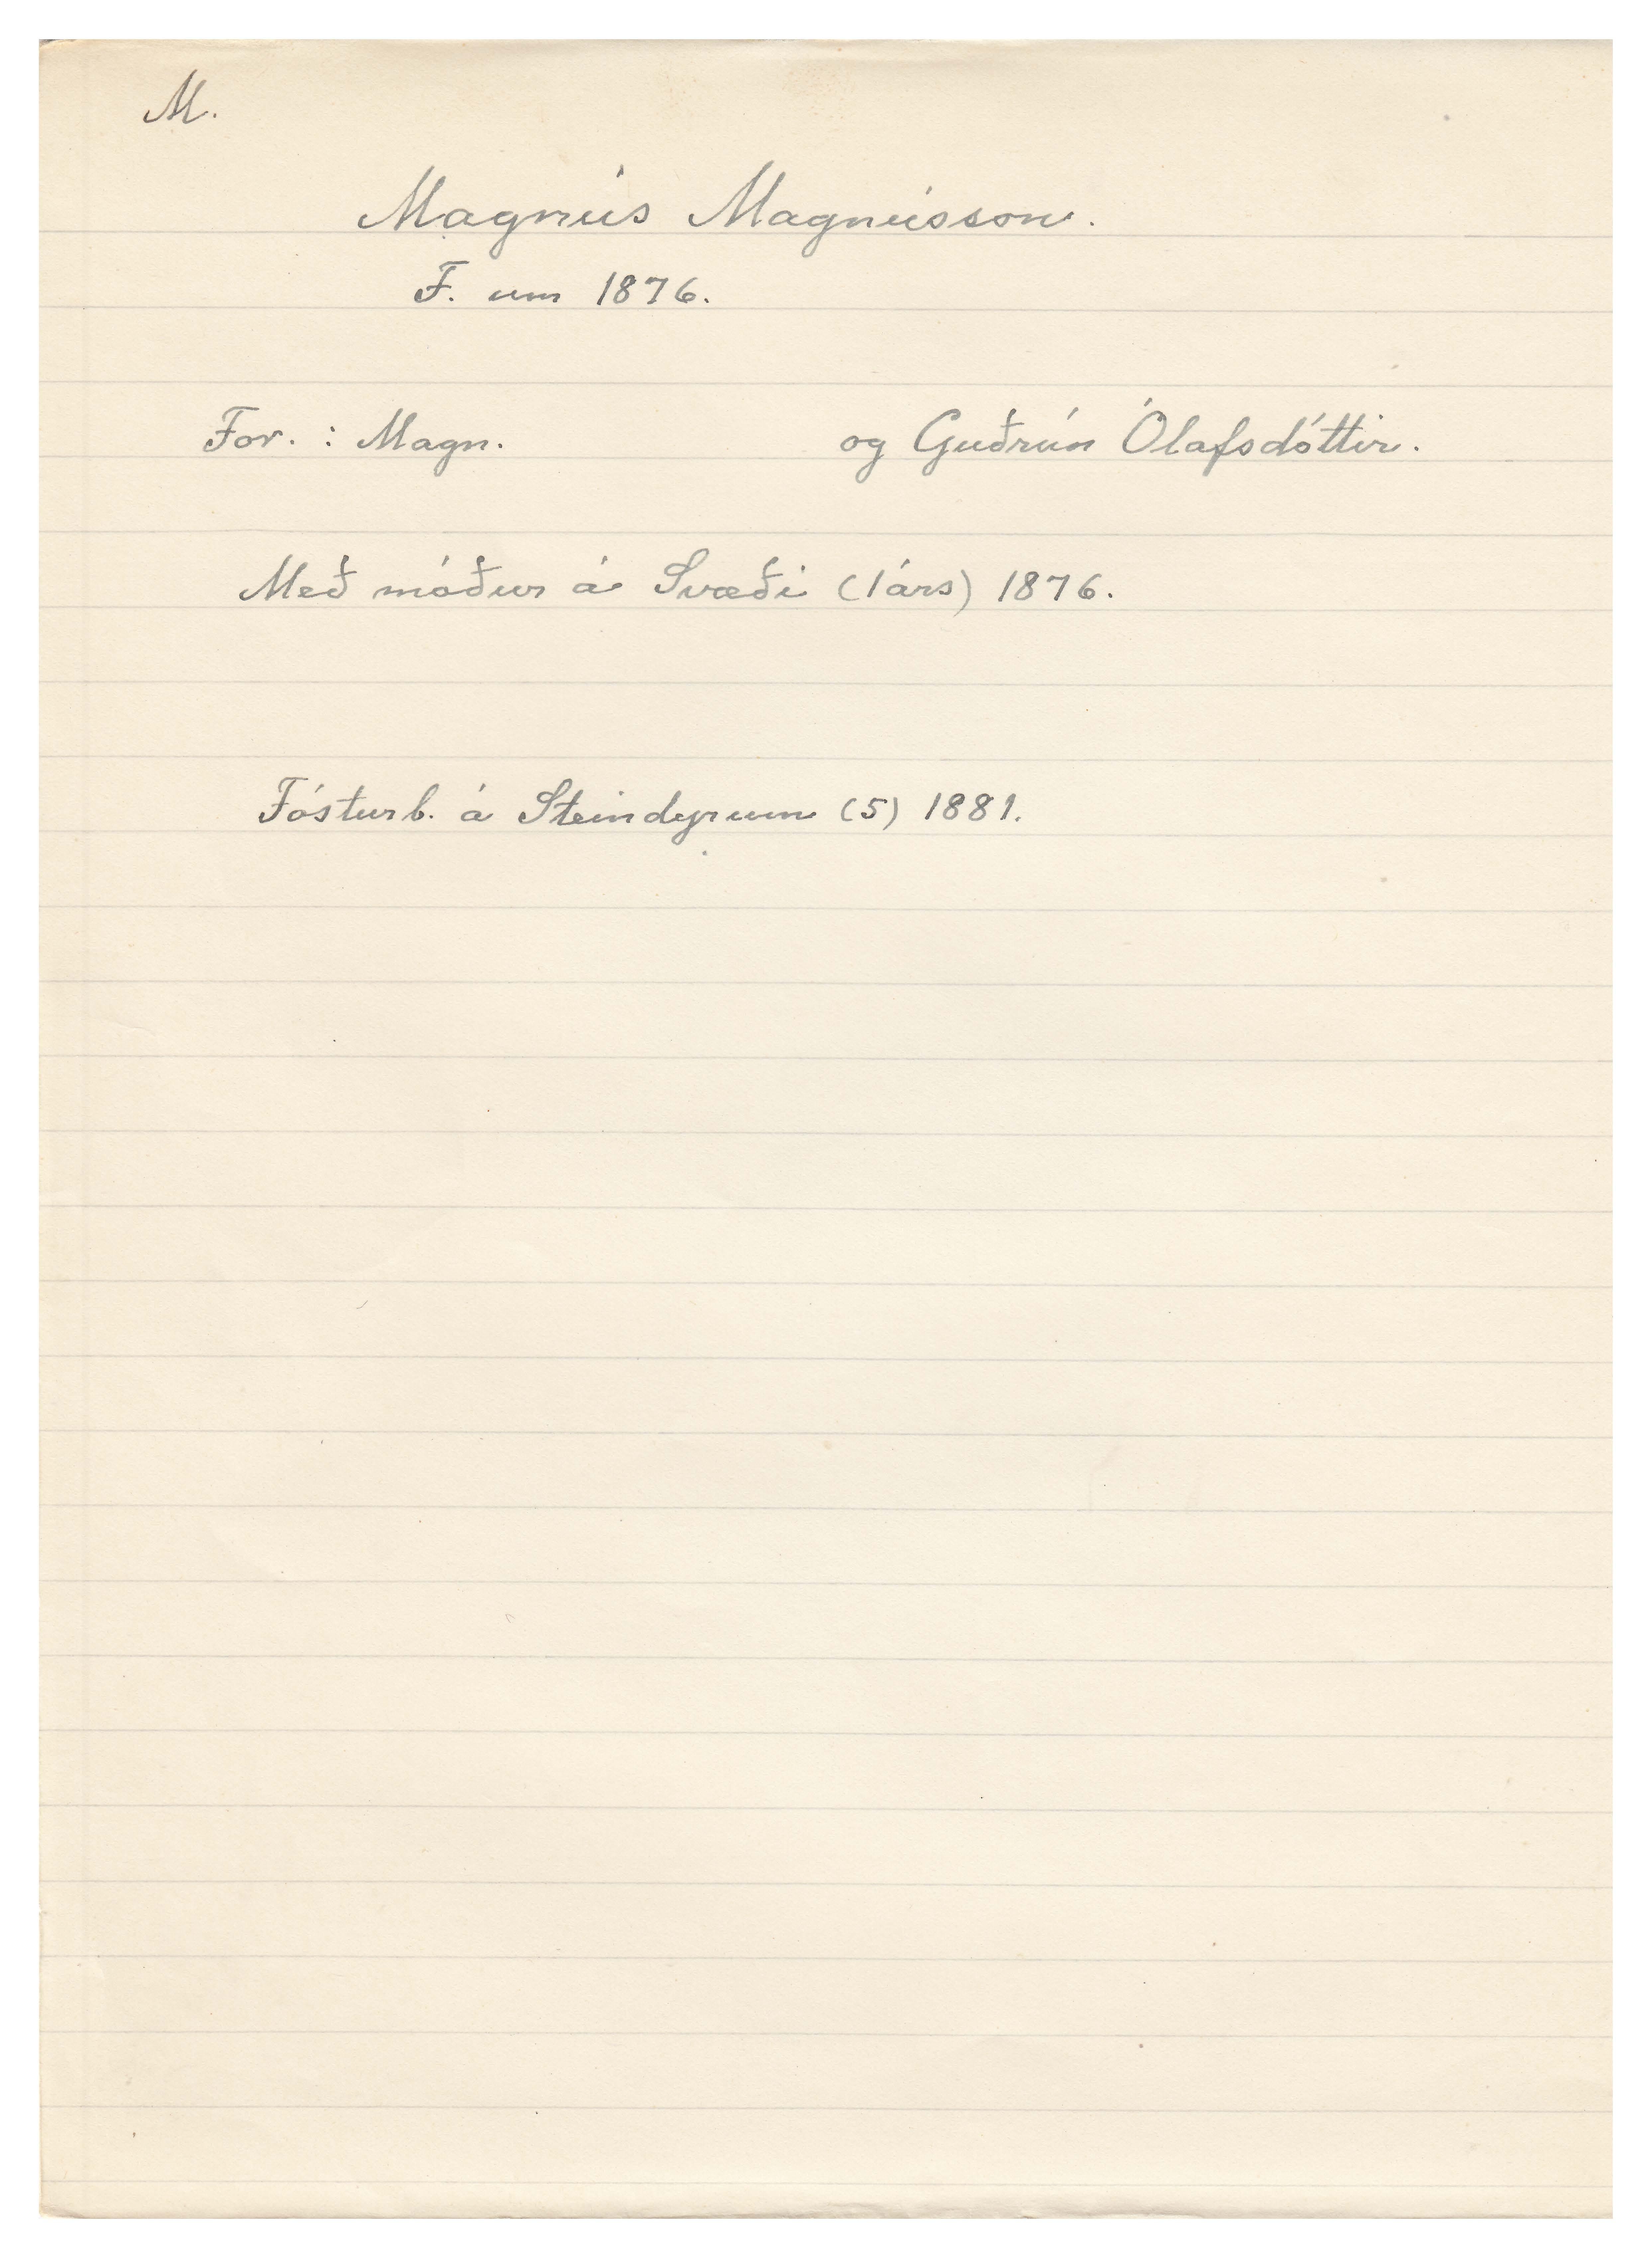 M.
Magnús Magnússon.
F. um 1876.
For. : Magn. og Guðrún Ólafsdóttir.
Með móður á Svæði (1árs) 1876.
Fósturb. á Steindyrum (5) 1881.